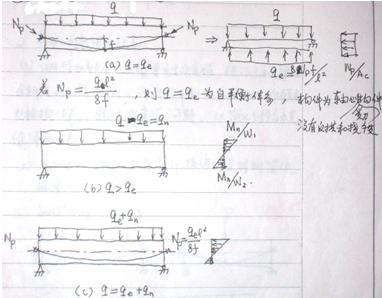 q
q
Np
Np
f
⇒
(a) q=qe
qe = 8Npf/l²
Np/Ac
若 Np = qel²/8f , 则 q=qe 为自平衡体系, 构件为轴心受力构件
没有反拱和挠度
q-qe=qn
Mn/W1
Mn/W2.
(b) q>qe
qe+qn
Np
Np=qel²/8f
(c) q=qe+qn